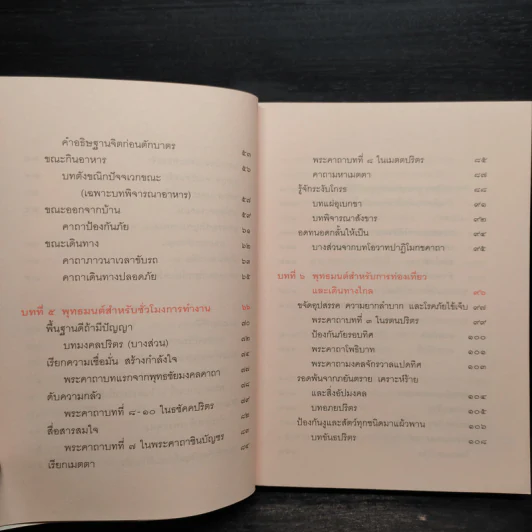 คำอธิษฐานจิตก่อนตักบาตร ๕๘
ขณะกินอาหาร ๕๖
บทตังขณิกปัจจเวกขณะ
(เฉพาะบทพิจารณาอาหาร) ๕๘
ขณะออกจากบ้าน ๕๙
คาถาป้องกันภัย ๖๒
ขณะเดินทาง ๖๒
คาถาภาวนาเวลาขับรถ ๖๓
คาถาเดินทางปลอดภัย ๖๕
บทที่ ๕ พุทธมนต์สำหรับชั่วโมงการทำงาน
พื้นฐานดีถ้ามีปัญญา
บทมงคลปริตร (บางส่วน)
เรียกความเชื่อมั่น สร้างกำลังใจ
พระคาถาบทแรกจากพุทธชัยมงคลคาถา
ดับความกลัว
พระคาถาบทที่ ๘-๑๐ ในธชัคคปริตร
สื่อสารสมใจ
พระคาถาบทที่ ๗ ในพระคาถาชินบัญชร
เรียกเมตตา
พระคาถาบทที่ ๘ ในเมตตปริตร ๘๕
คาถามหาเมตตา ๘๗
รู้จักระงับโกรธ ๘๘
บทแผ่อุเบกขา ๙๑
บทพิจารณาสังขาร ๙๒
อดทนอดกลั้นให้เป็น ๙๔
บางส่วนจากบทโอวาทปาฏิโมกขคาถา ๙๕
บทที่ ๖ พุทธมนต์สำหรับการท่องเที่ยว
และเดินทางไกล ๙๖
ขจัดอุปสรรค ความยากลำบาก และโรคภัยไข้เจ็บ ๙๙
พระคาถาบทที่ ๓ ในรตนปริตร ๙๙
ป้องกันภัยรอบทิศ ๑๐๐
พระคาถาโพธิบาท ๑๐๑
พระคาถามงคลจักรวาลแปดทิศ ๑๐๓
รอดพ้นจากภยันตราย เคราะห์ร้าย
และสิ่งอัปมงคล ๑๐๔
บทอภยปริตร ๑๐๕
ป้องกันงูและสัตว์ทุกชนิดมาแผ้วพาน ๑๐๖
บทขันธปริตร ๑๐๘